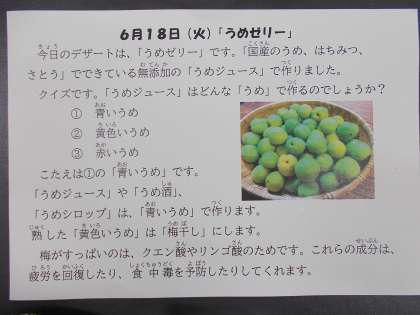 6月18日（火）「うめゼリー」
今日のデザートは、「うめゼリー」です。「国産のうめ、はちみつ、
さとう」でできている無添加の「うめジュース」で作りました。
クイズです。「うめジュース」はどんな「うめ」で作るのでしょうか？
① 青いうめ
② 黄色いうめ
③ 赤いうめ
こたえは①の「青いうめ」です。
「うめジュース」や「うめ酒」、
「うめシロップ」は、「青いうめ」で作ります。
熟した「黄色いうめ」は「梅干し」にします。
梅がすっぱいのは、クエン酸やリンゴ酸のためです。これらの成分は、
疲労を回復したり、食中毒を予防したりしてくれます。